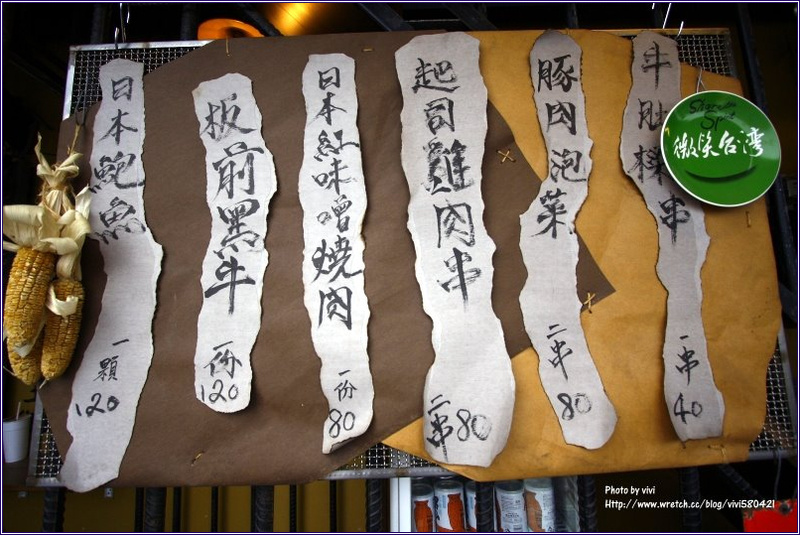 日本鮑魚
一顆
120
板前黑牛
一份
120
日本紅味噌燒肉
一份
80
起司雞肉串
二串80
豚肉泡菜
二串
80
牛肚粿串
一串
40
微笑台灣
Photo by vivi
Http://www.wretch.cc/blog/vivi580421